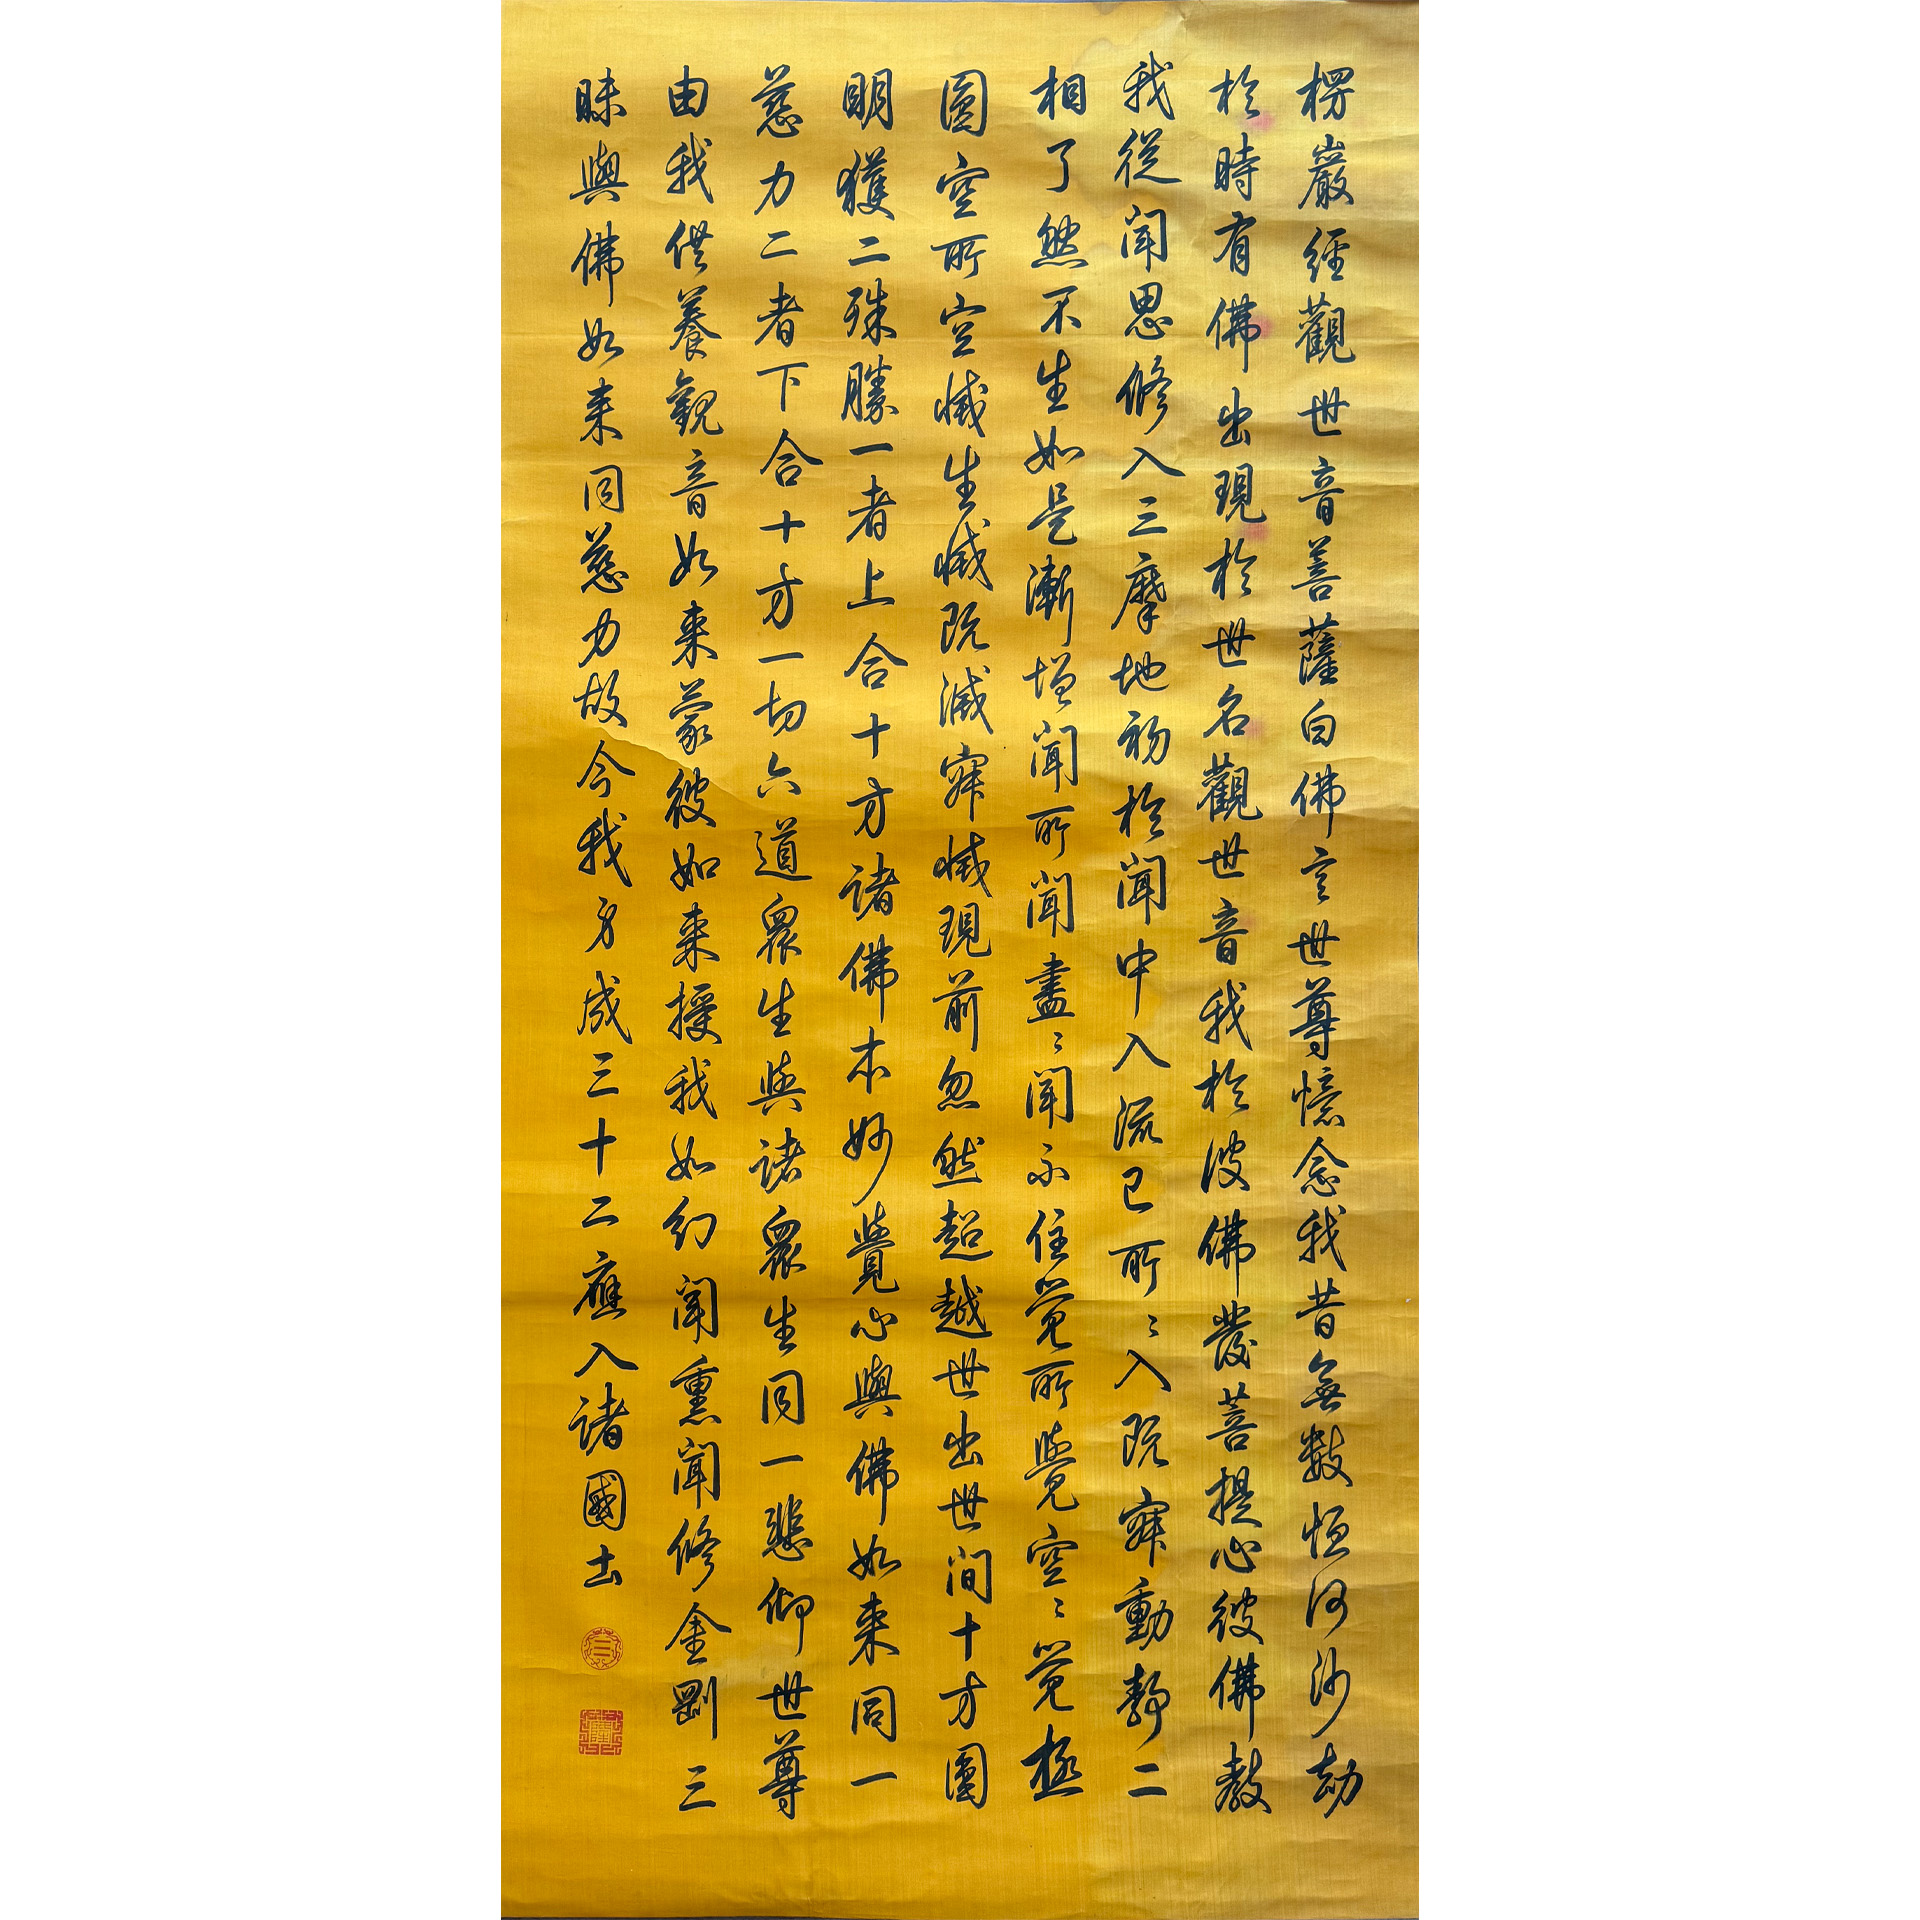 楞嚴經觀世音菩薩白佛言世尊憶念我昔無數恒河沙劫
於時有佛出現於世名觀世音我於彼佛發菩提心彼佛教
我從聞思修入三摩地初於聞中入流已所〻入既寂動靜二
相了然不生如是漸增聞所聞盡〻聞不住覺所覺空〻覺極
圓空所空滅生滅既滅寂滅現前忽然超越世出世間十方圓
明獲二殊勝一者上合十方諸佛本妙覺心與佛如來同一
慈力二者下合十方一切六道眾生與諸眾生同一悲仰世尊
由我供養觀音如來蒙彼如來授我如幻聞熏聞修金剛三
昧與佛如來同慈力故今我身成三十二應入諸國土